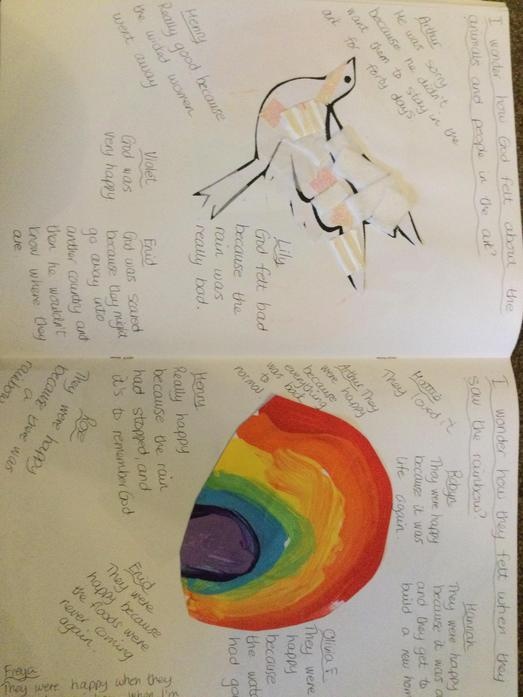 I wonder how God felt about the
animals and people in the ark?
Arthur
He was sorry
because he didn't
want them to stay in the
ark for forty days
Henry
Really good because
the wicked women
went away
Violet
God was
very happy
Lily
God felt bad
because the
rain was
really bad.
Enid
God was scared
because they might
go away into
another country and
then he wouldn't
know where they
are
I wonder how they felt when they
saw the rainbow?
They loved it
Robyn
They were happy
because it was
life again.
Hannah
They were happy
because it was
and they get to
build a new hom
Arthur They
were happy
because
everything
was back
to
normal
Henry
Really happy
because the rain
had stopped, and
it's to remember God
Olivia F
They were
happy
because
the wat
had go
They were happy
because there was
rainbow
Enid
They were
happy because
the floods were
never coming
again.
Freya
They were happy when they